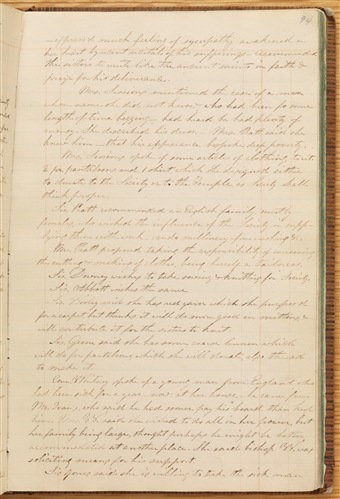 94
expressed much feeling of sympathy awakened in
her heart by recent recitals of his sufferings — recommended
the sisters to unite like the ancient saints in faith &
prayer for his deliverance.
Mrs. mentioned the case of a man
whose name she did not know who had been for some
length of time begging — had heard he had plenty of
money. He described his dress. Mrs. Pratt said she
knew him — that his appearance bespoke deep poverty.
Mrs. spoke of some articles of clothing,
2 pr. pantaloons and 1 shirt which she designed either
to donate to the Society or to the Temple, as Society shall
think proper.
Sis. Pratt recommended an English family, mostly
females, who wished the influence of the Society in supplying
them with work and millinery, fur making &c.
Mrs. Pratt proposed taking the responsibility of overseeing
the cutting & making of clothes, being herself a tailoress.
Sis. wishes to take sewing & knitting for Society.
Sis. Abbott wishes the same.
Sis. said she has red yarn which she purposed
for a carpet but thinks it will do more good in mittens &
will contribute it for the sisters to knit.
Sis. Green said she has some coarse linen which
will do for pantaloons which she will donate, also thread
to make it.
Coun. Whitney spoke of a young man from England who
had been sick for a year, was at her house, he came from
Mr. who said he had some pay his board then kept
him. Coun. W. said she wished to do all in her power, but
her family being large, thought perhaps he might be better
accommodated at another place. She said bishop W. was
soliciting means for his support.
Sis. Jones said she is willing to take the sick man